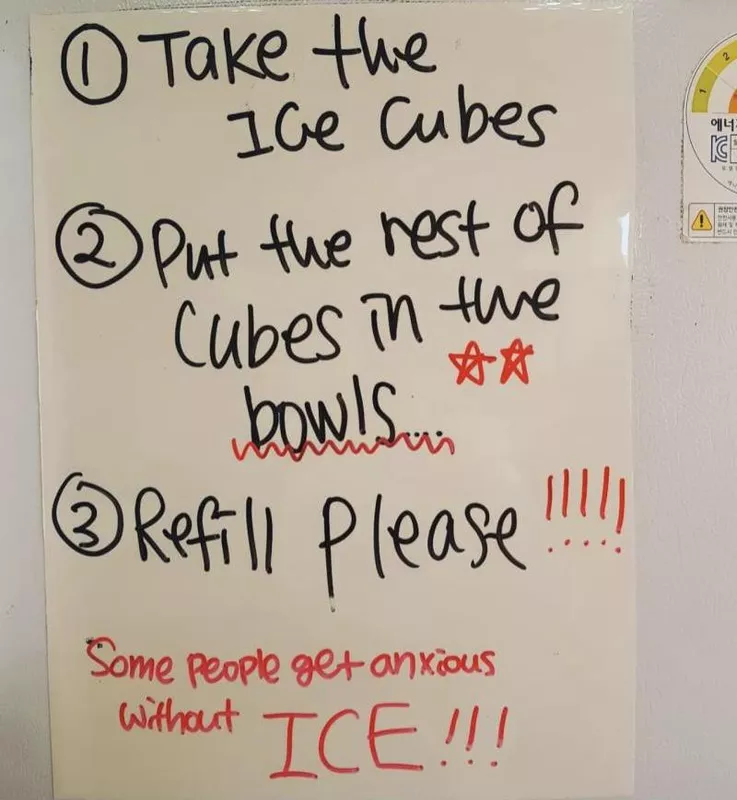 ① Take the
Ice Cubes
② Put the rest of
Cubes in the
bowls...
③ Refill please !!!!!
Some people get anxious
without ICE!!!
1 2
에너지